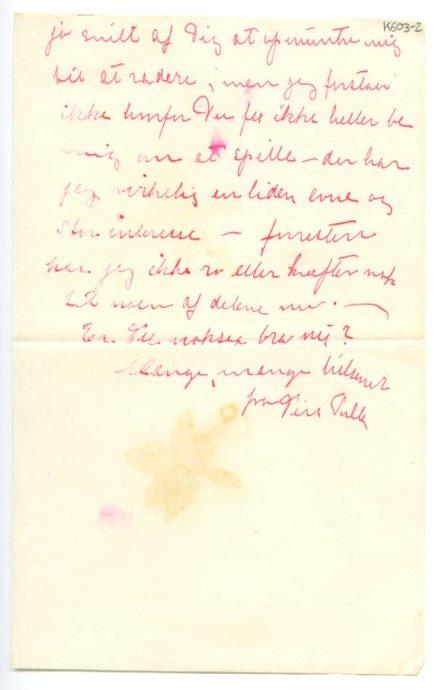 K603-2
jo snilt af Dig at opmuntre mig
til at radere, men jeg forstaar
ikke hvorfor Du for ikke heller be
mig om at spille – der har
jeg virkelig en liden evne og
stor interesse – forresten
har jeg ikke ro eller kræfter nok
til noen af delene nu. —
Er Du noksaa bra nu?
Mange, mange hilsener
fra Din Tulla